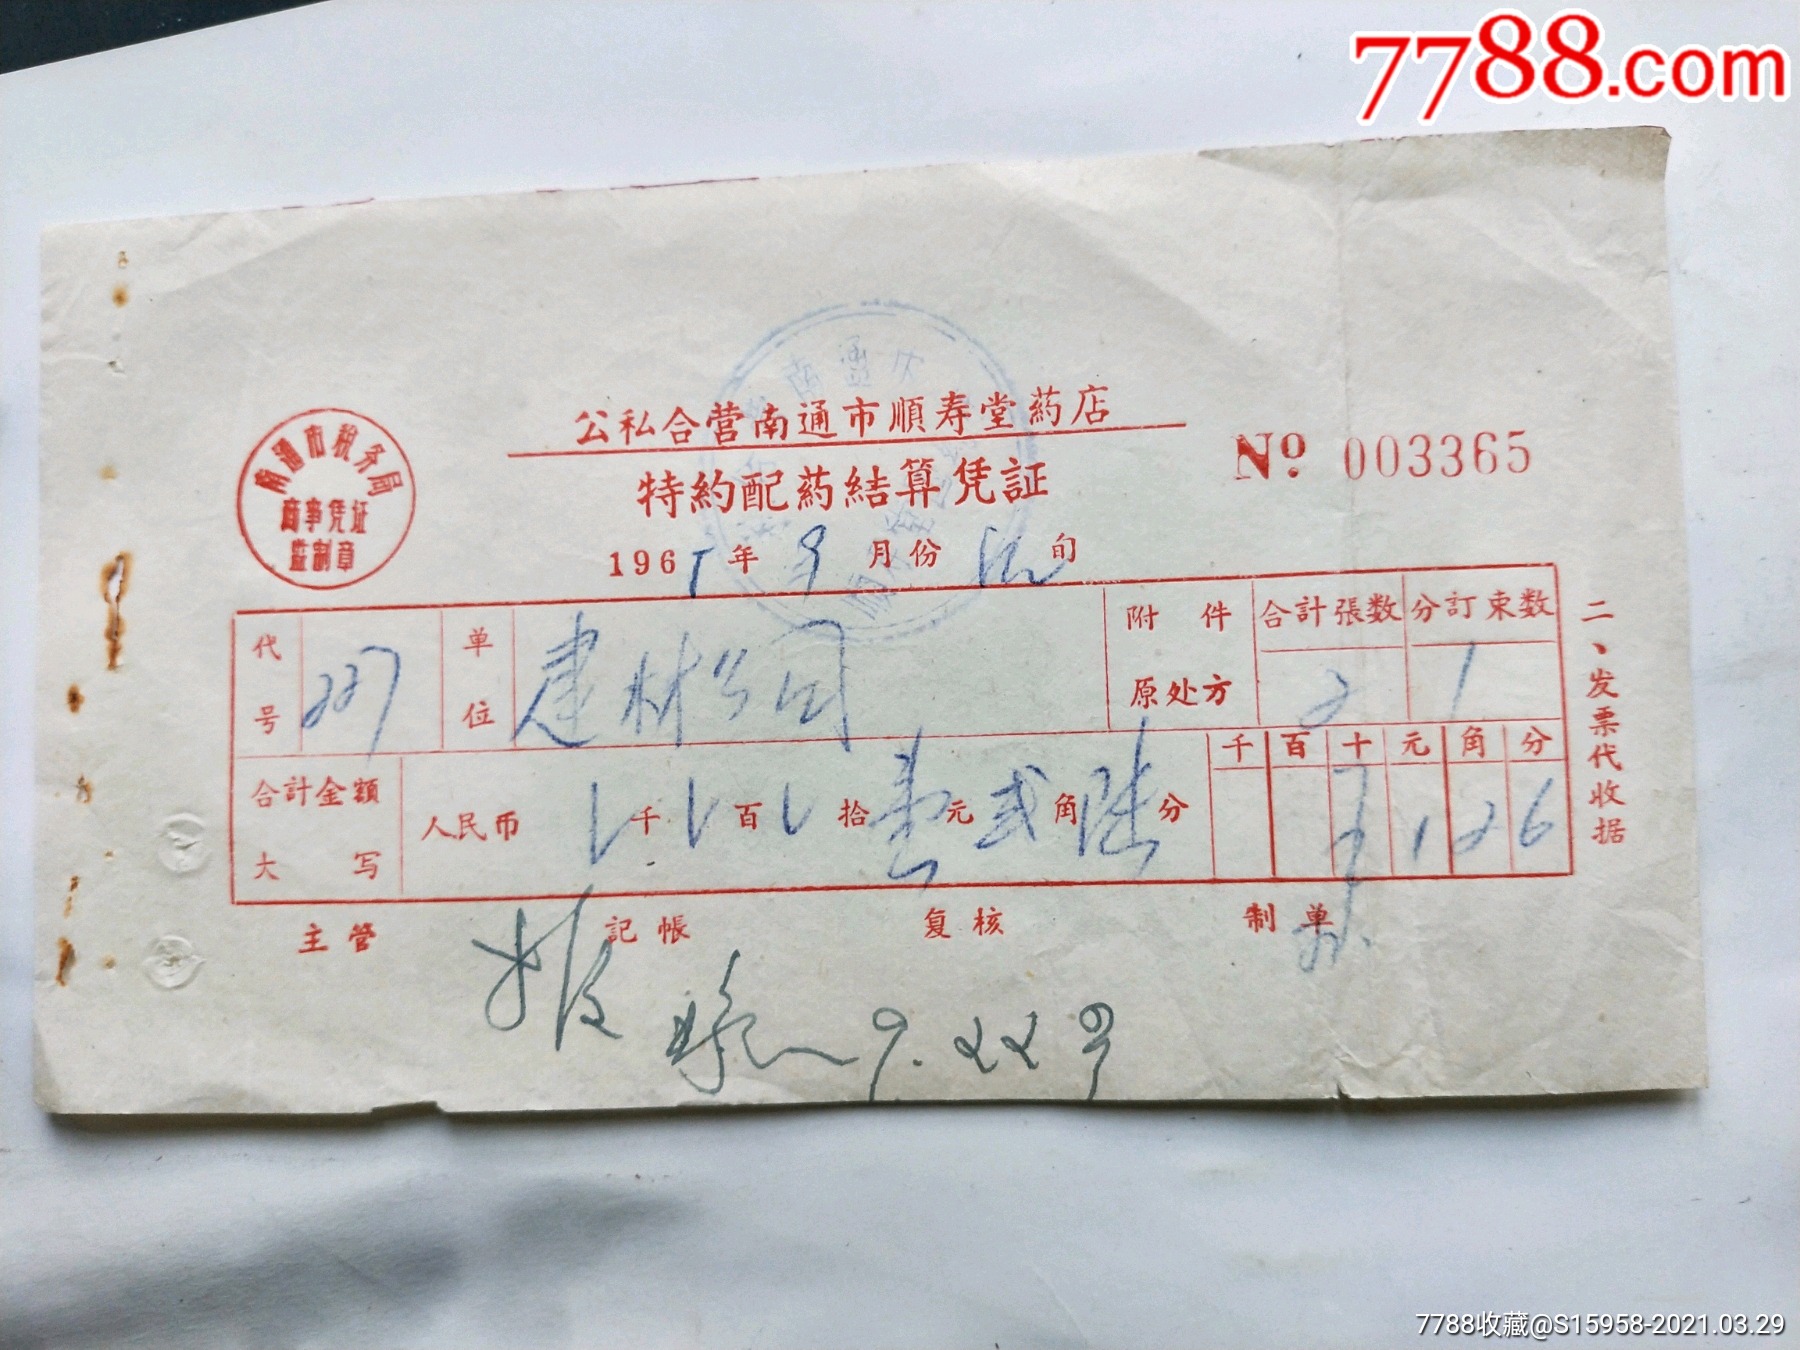 7788.com
公私合营南通市順寿堂葯店
特約配葯結算凭証
No. 003365
南通市税务局
商事凭证
监制章
1965年9月份 旬
代号 227 单位 建材公司 附件 原处方 合計張数 2 分訂束数 1
合計金額 大写 人民币 千 百 拾 壹元 弍角 陆分 千 百 十 元 角 分 ¥ 1 2 6
二、发票代收据
主管 記帳 复核 制单
报 9.22
7788收藏@S15958-2021.03.29